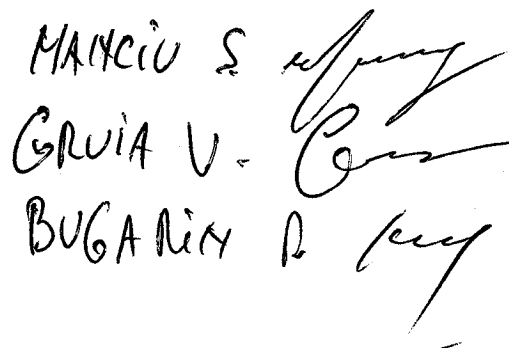 MANCIU S
GRUIA V.
BUGARIN D.